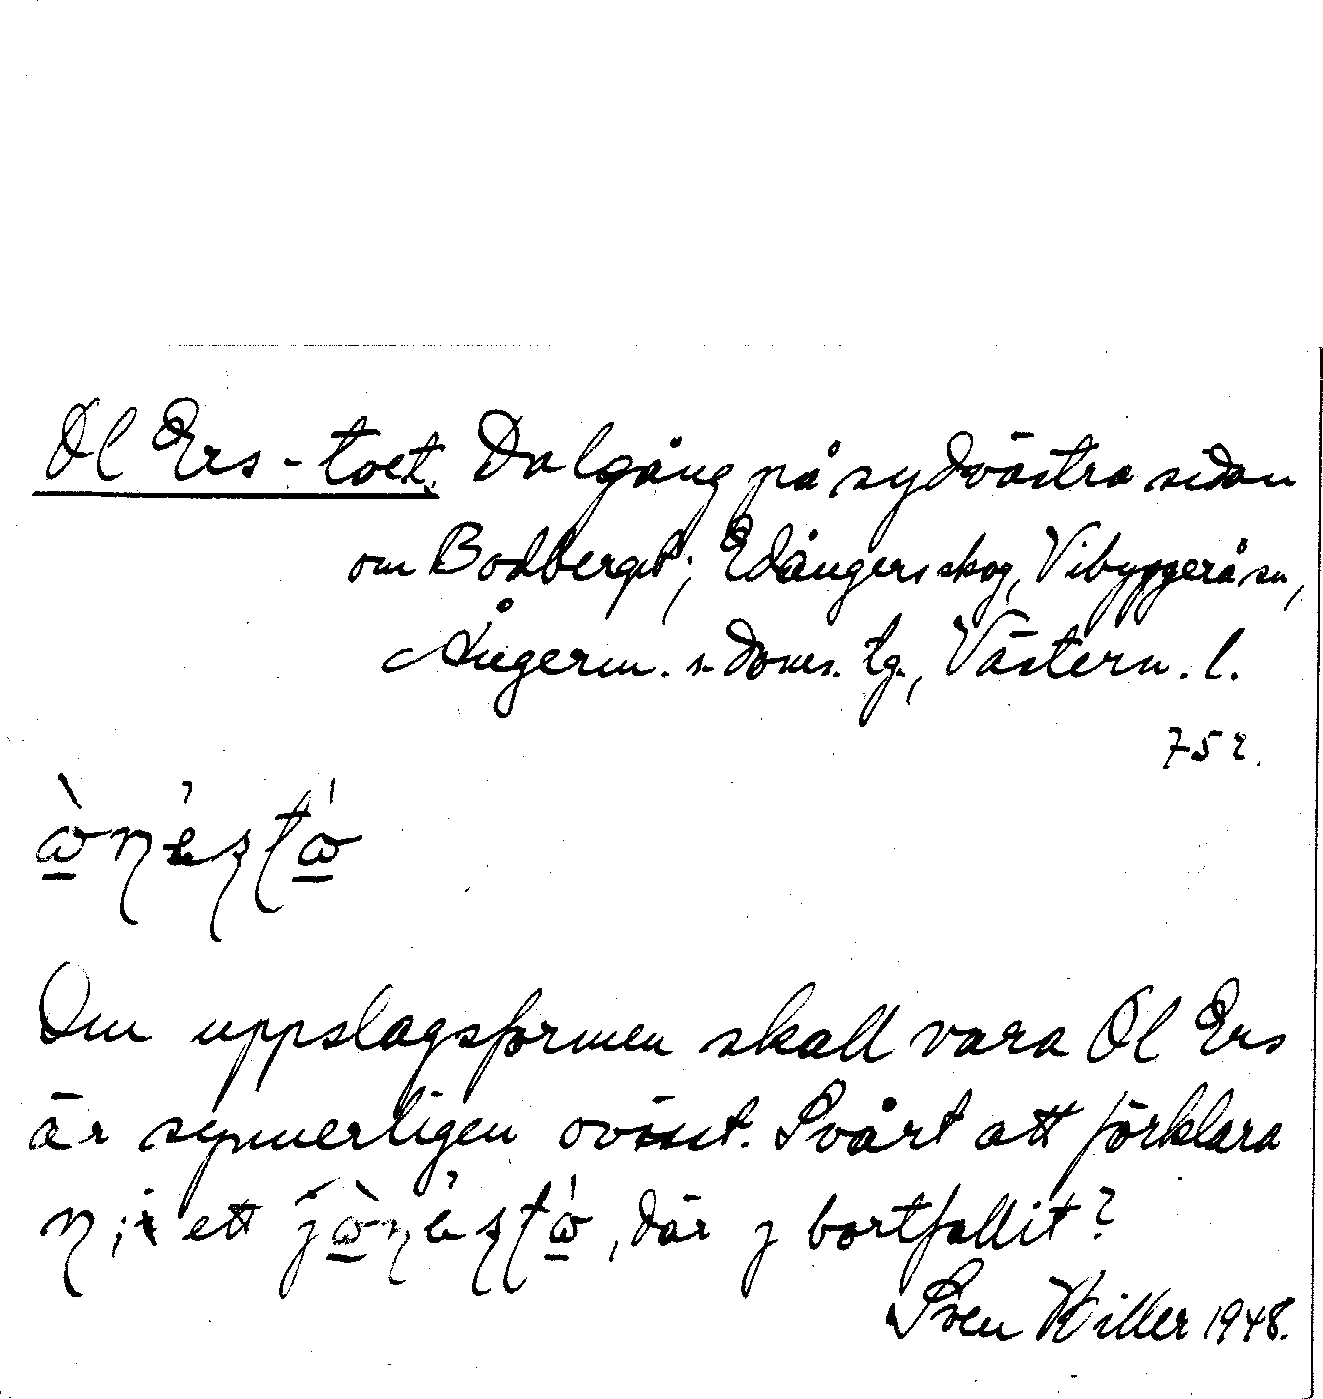 Öl Ers-toet. Dalgång på sydvästra sidan
om Bodberget; Edångers skog, Vibyggerå sn,
Ångerm. s. doms. tg., Västern. l.
75 r.
Om uppslagsformen skall vara Öl Ers
är synnerligen ovisst. Svårt att förklara
ett , där j bortfallit?
Sven Hiller 1948.